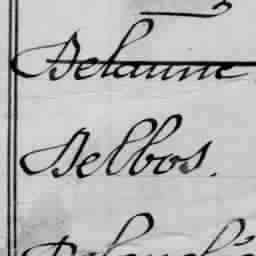 Delaune
Delbos.